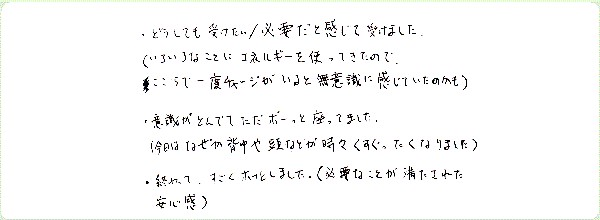 ・どうしても受けたい/必要だと感じて受けました。
(いろいろなことにエネルギーを使ってきたので、
ここらで一度チャージがいると無意識に感じていたのかも)
・意識がとんでてただボーっと座ってました。
(今日はなぜか背中や頭などが時々くすぐったくなりました)
・終わって、すごくホッとしました。(必要なことが満たされた
安心感)